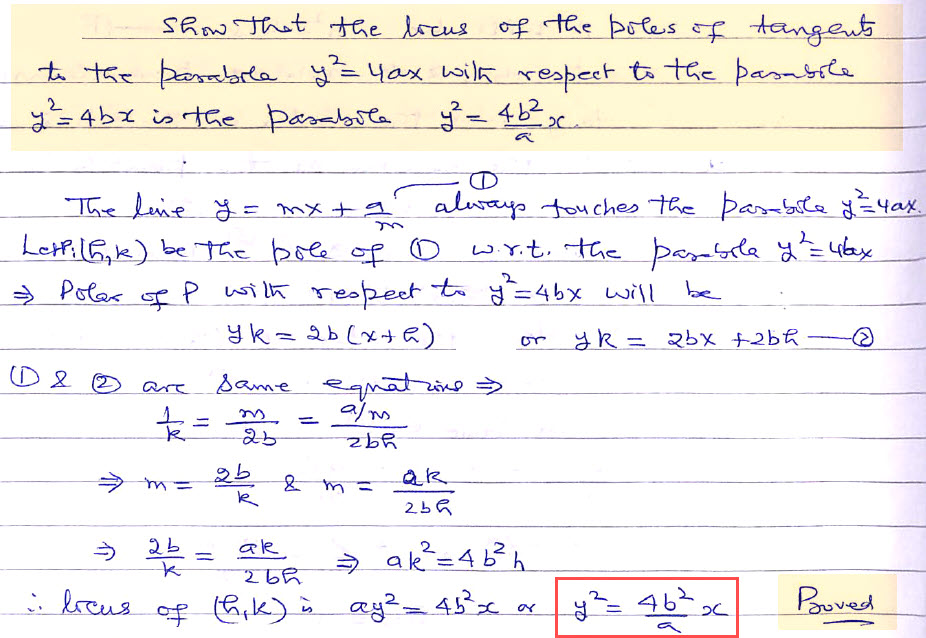 Show that the locus of the poles of tangents
to the parabola y²=4ax with respect to the parabola
y²=4bx is the parabola y² = 4b²/a x.
①
The line y = mx + a/m always touches the parabola y²=4ax.
Let P(h,k) be the pole of ① w.r.t. the parabola y²=4bx
⇒ Polar of P with respect to y²=4bx will be
yk = 2b(x+h) or yk = 2bx + 2bh —②
① & ② are same equations ⇒
1/k = m/2b = a/m/2bh
⇒ m = 2b/k & m = ak/2bh
⇒ 2b/k = ak/2bh ⇒ ak²=4b²h
∴ locus of (h,k) is ay²=4b²x or y² = 4b²/a x Proved